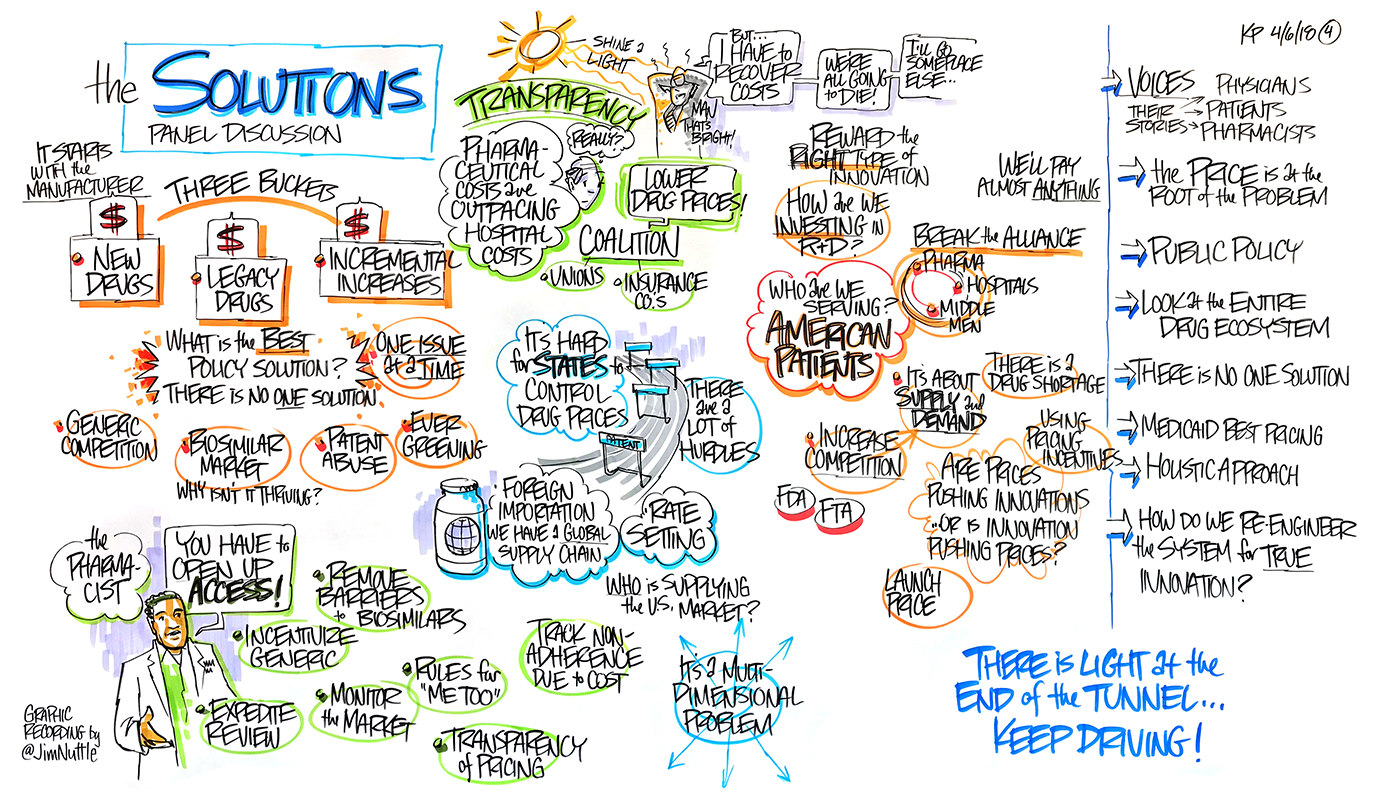 the SOLUTIONS
PANEL DISCUSSION
IT STARTS
WITH the
MANUFACTURER
THREE BUCKETS
$
NEW
DRUGS
$
LEGACY
DRUGS
$
INCREMENTAL
INCREASES
WHAT is the BEST
POLICY SOLUTION?
THERE is NO ONE SOLUTION
ONE ISSUE
at a TIME
GENERIC
COMPETITION
BIOSIMILAR
MARKET
WHY ISN'T IT THRIVING?
PATENT
ABUSE
EVER
GREENING
the
PHARMA-
CIST
YOU HAVE to
OPEN UP
ACCESS!
REMOVE
BARRIERS
to BIOSIMILARS
INCENTIVIZE
GENERIC
EXPEDITE
REVIEW
MONITOR
the MARKET
RULES for
"ME TOO"
TRANSPARENCY
of PRICING
TRACK NON-
ADHERENCE
DUE to COST
GRAPHIC
RECORDING by
@JimNuttle
SHINE a
LIGHT
TRANSPARENCY
PHARMA-
CEUTICAL
COSTS are
OUTPACING
HOSPITAL
COSTS
REALLY?
MAN
THAT'S
BRIGHT!
BUT...
I HAVE to
RECOVER
COSTS
WE'RE
ALL GOING
to DIE!
I'LL GO
SOMEPLACE
ELSE...
LOWER
DRUG PRICES!
COALITION
UNIONS
INSURANCE
CO'S
IT'S HARD
for STATES to
CONTROL
DRUG PRICES
PATENT
THERE
are a
LOT of
HURDLES
FOREIGN
IMPORTATION
WE HAVE a GLOBAL
SUPPLY CHAIN
RATE
SETTING
WHO is SUPPLYING
the U.S. MARKET?
IT'S a MULTI-
DIMENSIONAL
PROBLEM
REWARD the
RIGHT TYPE of
INNOVATION
HOW are WE
INVESTING in
R+D?
WE'LL PAY
ALMOST ANYTHING
BREAK the ALLIANCE
PHARMA
HOSPITALS
MIDDLE
MEN
WHO are WE
SERVING?
AMERICAN
PATIENTS
IT'S ABOUT
SUPPLY and
DEMAND
THERE is a
DRUG SHORTAGE
INCREASE
COMPETITION
FDA
FTA
USING
PRICING
INCENTIVES
ARE PRICES
PUSHING INNOVATIONS
...OR is INNOVATION
PUSHING PRICES?
LAUNCH
PRICE
KP 4/6/18 4
VOICES
THEIR
STORIES
PHYSICIANS
PATIENTS
PHARMACISTS
the PRICE is at the
ROOT of the PROBLEM
PUBLIC POLICY
LOOK at the ENTIRE
DRUG ECOSYSTEM
THERE is NO ONE SOLUTION
MEDICAID BEST PRICING
HOLISTIC APPROACH
HOW DO WE RE-ENGINEER
the SYSTEM for TRUE
INNOVATION?
THERE is LIGHT at the
END of the TUNNEL...
KEEP DRIVING!